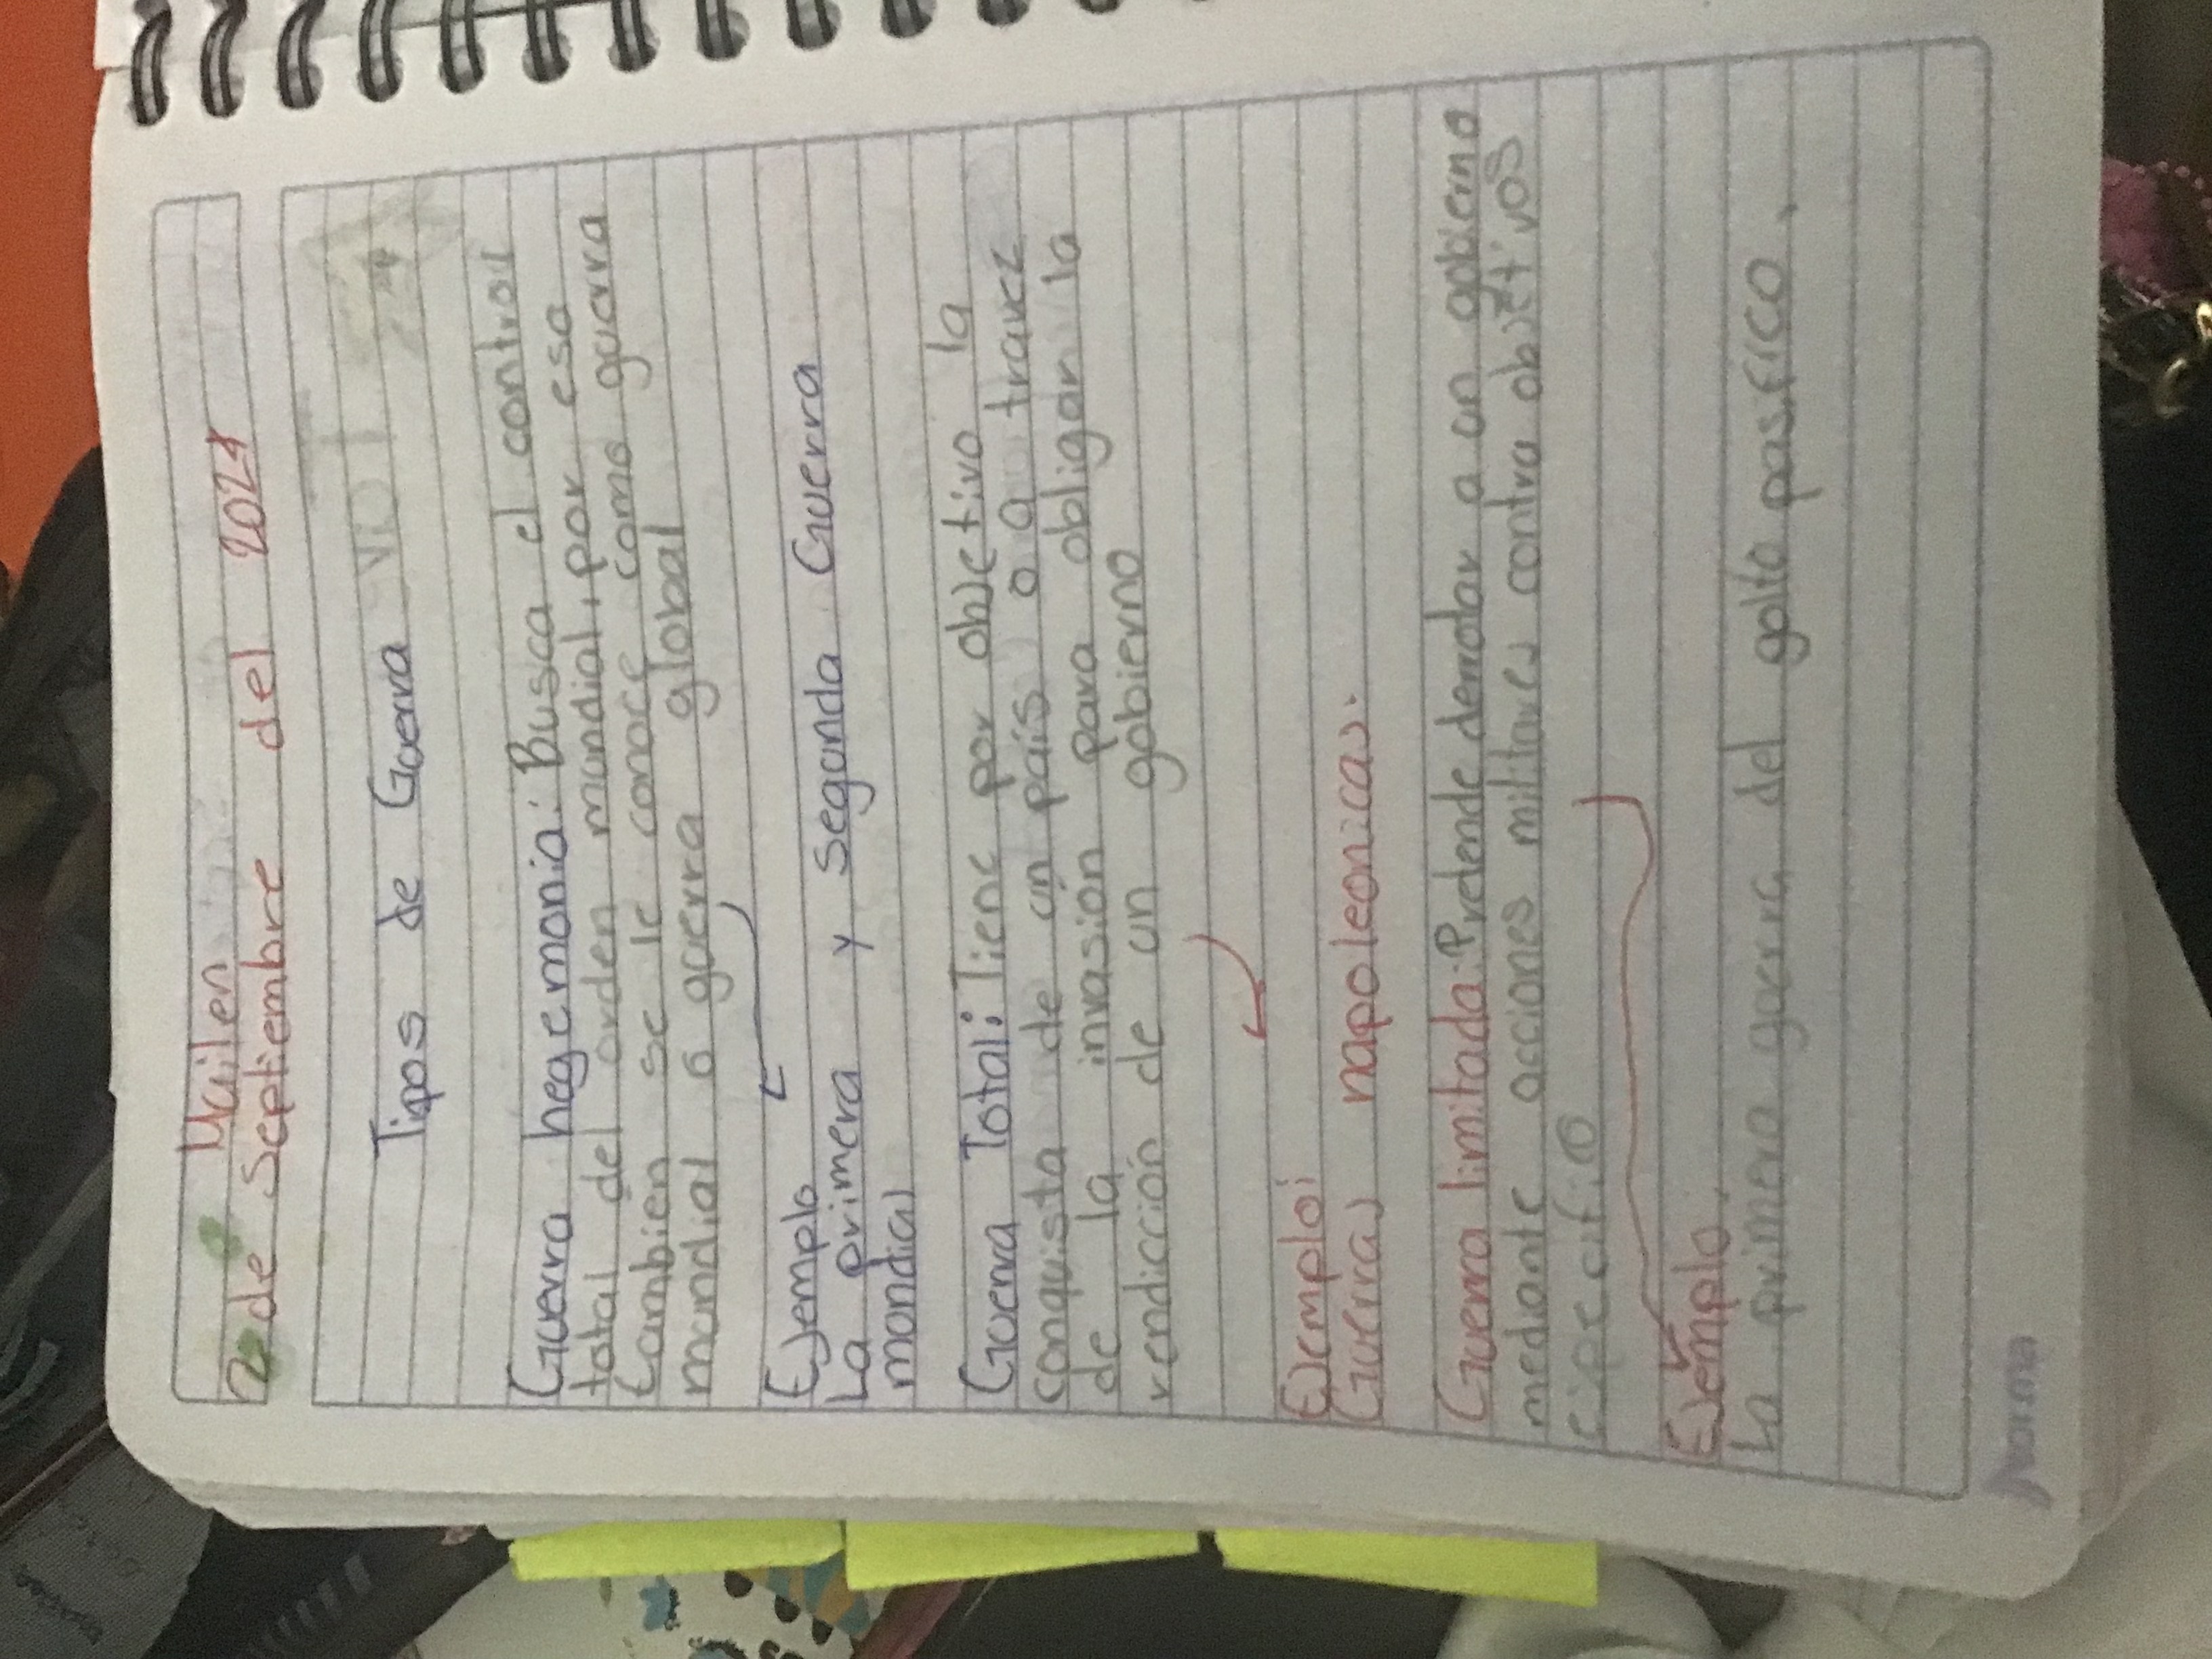 Mailen
de Septiembre del 2021
Tipos de Guerra
Guerra hegemonia: Busca el control
total del orden mundial, por esa
tambien se le conoce como guerra
mundial o guerra global
Ejemplo
La primera y segunda Guerra
mondial
Guerra Total: Tiene por objetivo la
conquista de un país o a travez
de la invasión para obligar la
rendicción de un gobierno
Ejemplo:
Guerras napoleonicas.
Guerra limitada: Pretende derrotar a un gobierno
mediante acciones militares contra objetivos
especifi0
Ejemplo:
La primera guerra del golfo pasfico.
Norma